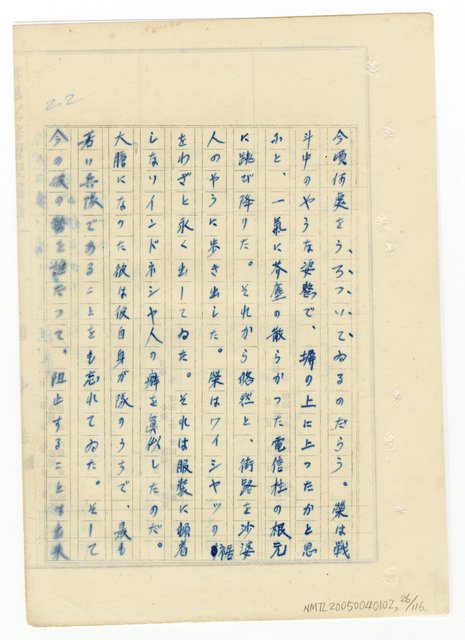 22
今頃何実をう、ろ、つ、い、てゐるのだらう。榮は戦
斗中のやうな姿勢で、塀の上に上つたかと思
ふと、一氣に芥塵の散らかつた電信柱の根元
に跳び降りた。それから悠然と、街路を沙婆
人のやうに歩き出した。榮はワイシャツの裾
をわざと永く出してゐた。それは服装に頓着
しないインドネシヤ人の癖を真似したのだ。
大膽になつた彼は彼自身が隊のうちで、最も
若い兵隊であることをも忘れてゐた。そして
今の彼の勢を誰だつて、阻止することは出来
NMTL20050040102, 26/116